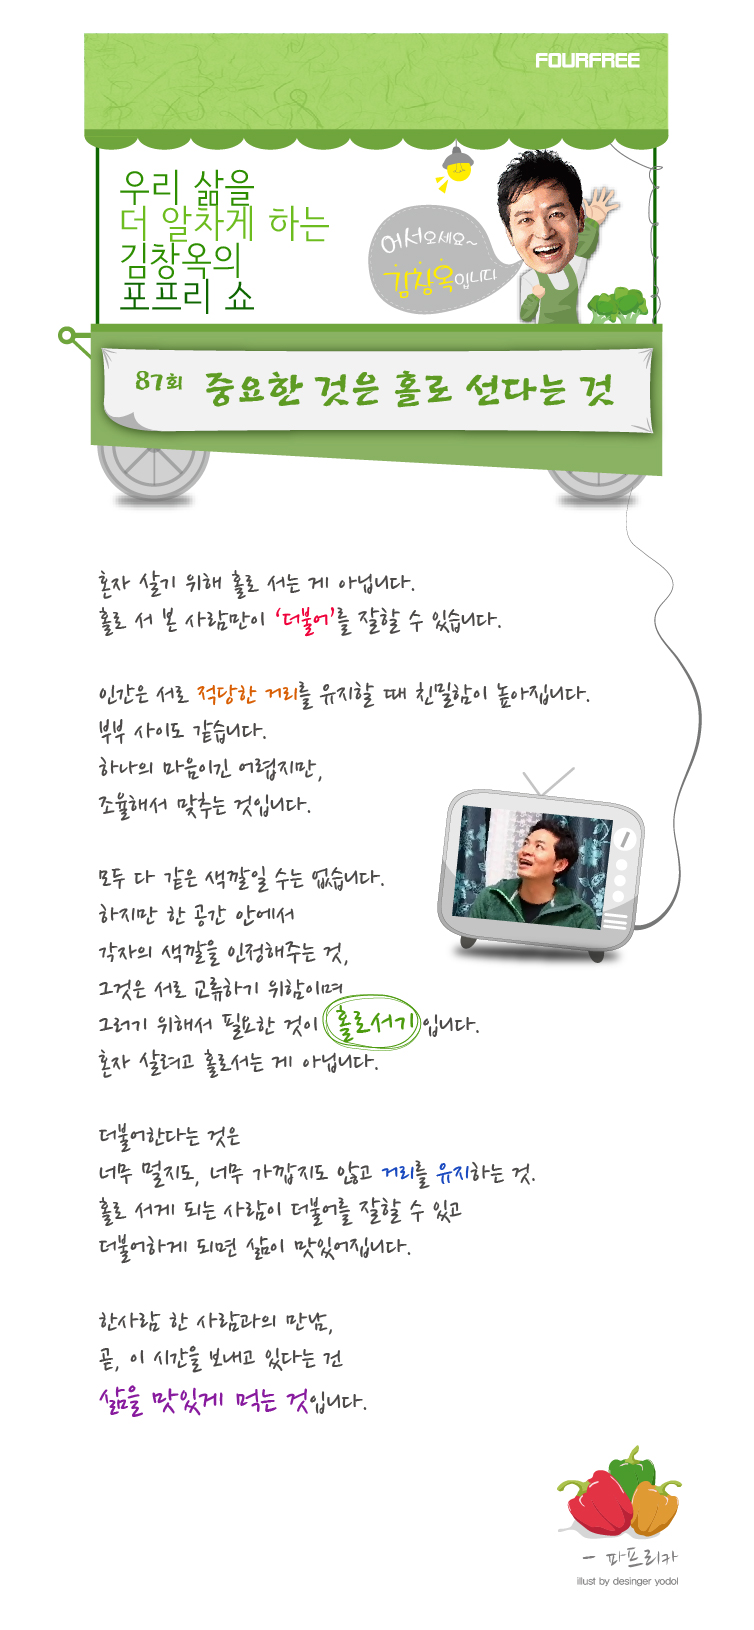 FOURFREE
우리 삶을
더 알차게 하는
김창옥의
포프리 쇼
어서오세요~
김창옥입니다
87회 중요한 것은 홀로 선다는 것
혼자 살기 위해 홀로 서는 게 아닙니다.
홀로 서 본 사람만이 ‘더불어’를 잘할 수 있습니다.
인간은 서로 적당한 거리를 유지할 때 친밀함이 높아집니다.
부부 사이도 같습니다.
하나의 마음이긴 어렵지만,
조율해서 맞추는 것입니다.
모두 다 같은 색깔일 수는 없습니다.
하지만 한 공간 안에서
각자의 색깔을 인정해주는 것,
그것은 서로 교류하기 위함이며
그러기 위해서 필요한 것이 홀로서기입니다.
혼자 살려고 홀로서는 게 아닙니다.
더불어한다는 것은
너무 멀지도, 너무 가깝지도 않고 거리를 유지하는 것.
홀로 서게 되는 사람이 더불어를 잘할 수 있고
더불어하게 되면 삶이 맛있어집니다.
한사람 한 사람과의 만남,
곧, 이 시간을 보내고 있다는 건
삶을 맛있게 먹는 것입니다.
- 파프리카
illust by desinger yodol